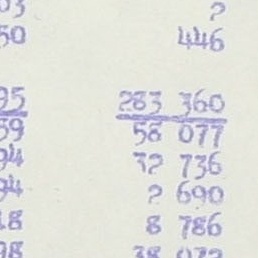 03 2
50 446
95 283 360
59 58 077
94 32 736
94 2 690
18 8 786
98 38 072